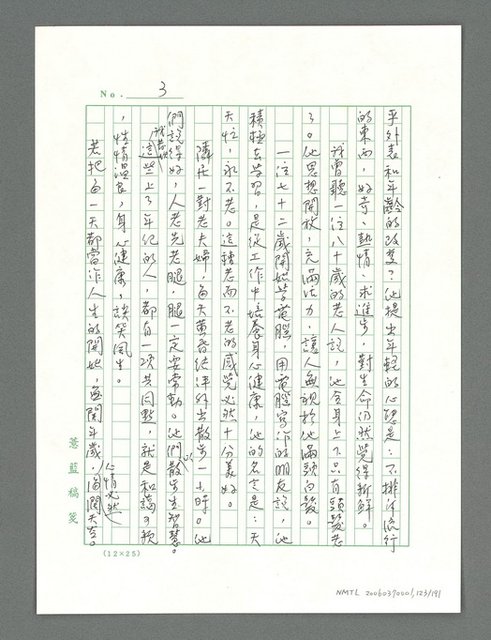 No. 3
乎外表和年齡的改變?他提出年輕的心態是:不排斥流行
的東西,好奇、熱情、求進步,對生命仍然覺得新鮮。
我曾聽一位八十歲的老人說,他全身上下只有頭髮老
了。他思想開放,充滿活力,讓人無視於他滿頭白髮。
一位七十二歲開始學電腦,用電腦寫作的朋友說,他
積極去學習,是從工作中培養身心健康,他的名言是:天
天忙,永不老。這種老而不老的感覺必然十分美好。
隔鄰一對老夫婦,每天黃昏結伴外出散步一小時。他
們說得好,人老先老腿,腿一定要勤。他們以散步生智慧。
我喜歡這些上了年紀的人,都有一項共同點,就是和藹可親
,性情溫良,身心健康,談笑風生。
若把每一天都當作人生的開始,無關年歲,心情必然海闊天空。
薏藍稿箋
(12×25)
NMTL 20060370001,123/191